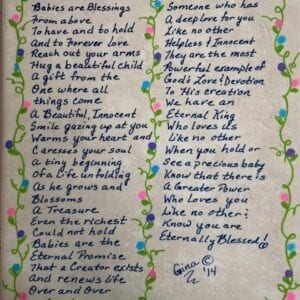 Babies are Blessings
From above
To have and to hold
And to forever love
Reach out your arms
Hug a beautiful child
A gift from the
One where all
things come
A Beautiful, Innocent
Smile gazing up at you
Warms your heart and
Caresses your soul
A tiny beginning
Of a Life unfolding
As he grows and
Blossoms
A Treasure
Even the richest
Could not hold
Babies are the
Eternal Promise
That a Creator exists
And renews life
Over and Over
Someone who has
A deep love for you
Like no other
Helpless & Innocent
They are the most
Powerful example of
God's Love & Devotion
To His creation
We have an
Eternal King
Who loves us
Like no other
When you hold or
See a precious baby
Know that there is
A Greater Power
Who Loves you
Like no other!
Know you are
Eternally Blessed!
Gina ©
'14